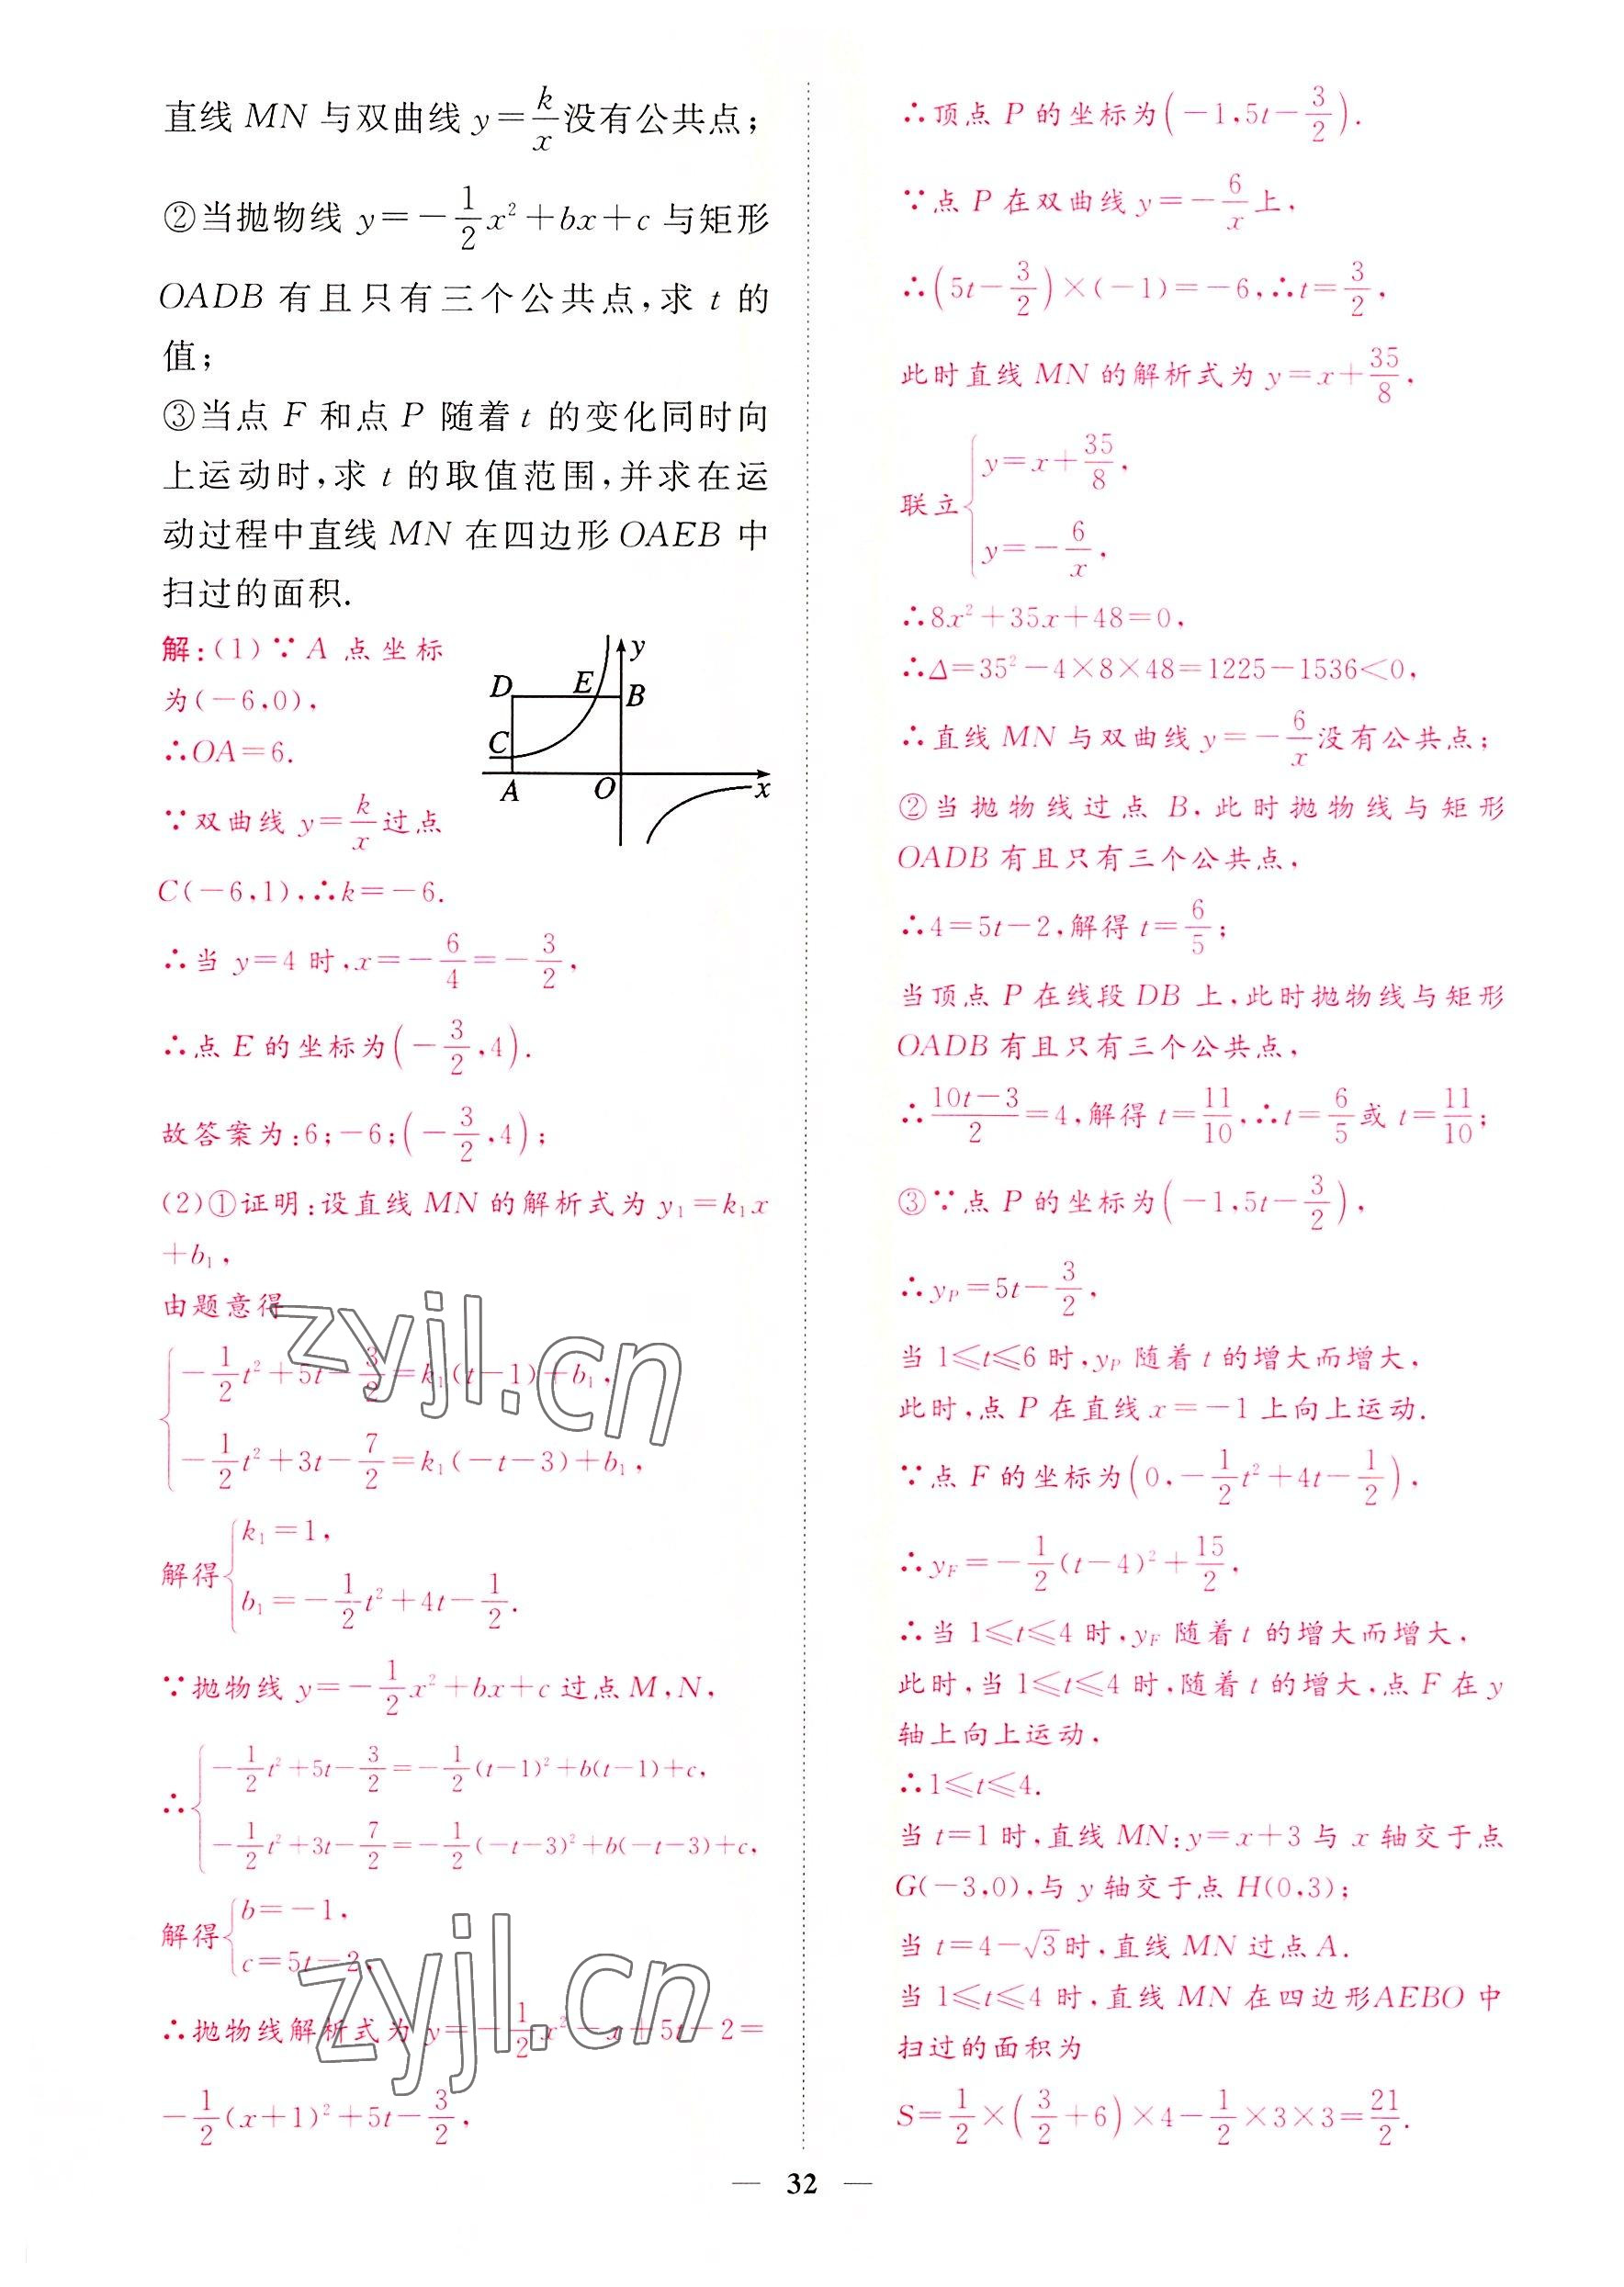 直线 MN 与双曲线 y=k/x 没有公共点;
②当抛物线 y=-1/2x²+bx+c 与矩形
OADB 有且只有三个公共点,求 t 的
值;
③当点 F 和点 P 随着 t 的变化同时向
上运动时,求 t 的取值范围,并求在运
动过程中直线 MN 在四边形 OAEB 中
扫过的面积.
解:(1)∵A 点坐标
为(-6,0),
∴OA=6.
∵双曲线 y=k/x 过点
C(-6,1),∴k=-6.
D E B y
C
A O x
∴当 y=4 时,x=-6/4=-3/2,
∴点 E 的坐标为(-3/2,4).
故答案为:6;-6;(-3/2,4);
(2)①证明:设直线 MN 的解析式为 y₁=k₁x
+b₁,
由题意得
{-1/2t²+5t-3/2=k₁(t-1)+b₁,
-1/2t²+3t-7/2=k₁(-t-3)+b₁,
解得{k₁=1,
b₁=-1/2t²+4t-1/2.
∵抛物线 y=-1/2x²+bx+c 过点 M,N,
∴{-1/2t²+5t-3/2=-1/2(t-1)²+b(t-1)+c,
-1/2t²+3t-7/2=-1/2(-t-3)²+b(-t-3)+c,
解得{b=-1,
c=5t-2,
∴抛物线解析式为 y=-1/2x²-x+5t-2=
-1/2(x+1)²+5t-3/2,
∴顶点 P 的坐标为(-1,5t-3/2).
∵点 P 在双曲线 y=-6/x 上,
∴(5t-3/2)×(-1)=-6,∴t=3/2,
此时直线 MN 的解析式为 y=x+35/8,
联立{y=x+35/8,
y=-6/x,
∴8x²+35x+48=0,
∴Δ=35²-4×8×48=1225-1536<0,
∴直线 MN 与双曲线 y=-6/x 没有公共点;
②当抛物线过点 B,此时抛物线与矩形
OADB 有且只有三个公共点,
∴4=5t-2,解得 t=6/5;
当顶点 P 在线段 DB 上,此时抛物线与矩形
OADB 有且只有三个公共点,
∴(10t-3)/2=4,解得 t=11/10,∴t=6/5或 t=11/10;
③∵点 P 的坐标为(-1,5t-3/2),
∴y_P=5t-3/2,
当 1≤t≤6 时,y_P 随着 t 的增大而增大,
此时,点 P 在直线 x=-1 上向上运动.
∵点 F 的坐标为(0,-1/2t²+4t-1/2),
∴y_F=-1/2(t-4)²+15/2,
∴当 1≤t≤4 时,y_F 随着 t 的增大而增大,
此时,当 1≤t≤4 时,随着 t 的增大,点 F 在 y
轴上向上运动,
∴1≤t≤4.
当 t=1 时,直线 MN:y=x+3 与 x 轴交于点
G(-3,0),与 y 轴交于点 H(0,3);
当 t=4-√3时,直线 MN 过点 A.
当 1≤t≤4 时,直线 MN 在四边形AEBO 中
扫过的面积为
S=1/2×(3/2+6)×4-1/2×3×3=21/2.
— 32 —
zyjl.cn
zyjl.cn